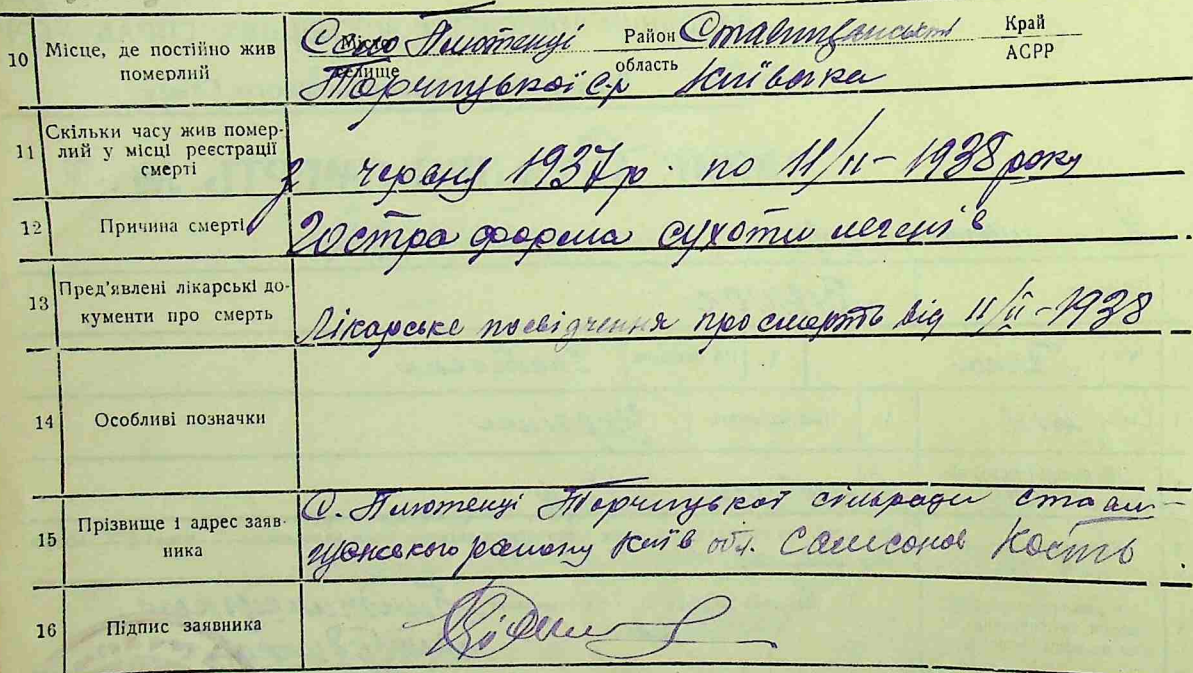 10 Місце, де постійно жив померлий Місто Село Плютенці Район Ставищанський Край
селище Торчицької с.р область Київська АСРР
11 Скільки часу жив помер-
лий у місці реєстрації
смерті
З червня 1937 р. по 11/II - 1938 року
12 Причина смерті Гостра форма сухоти легенів
13 Пред'явлені лікарські до-
кументи про смерть
Лікарське посвідчення про смерть від 11/II - 1938
14 Особливі позначки
15 Прізвище і адрес заяв-
ника
С. Плютенці Торчицької сільради Стави-
щанського району Київ обл. Самсонов Кость
16 Підпис заявника